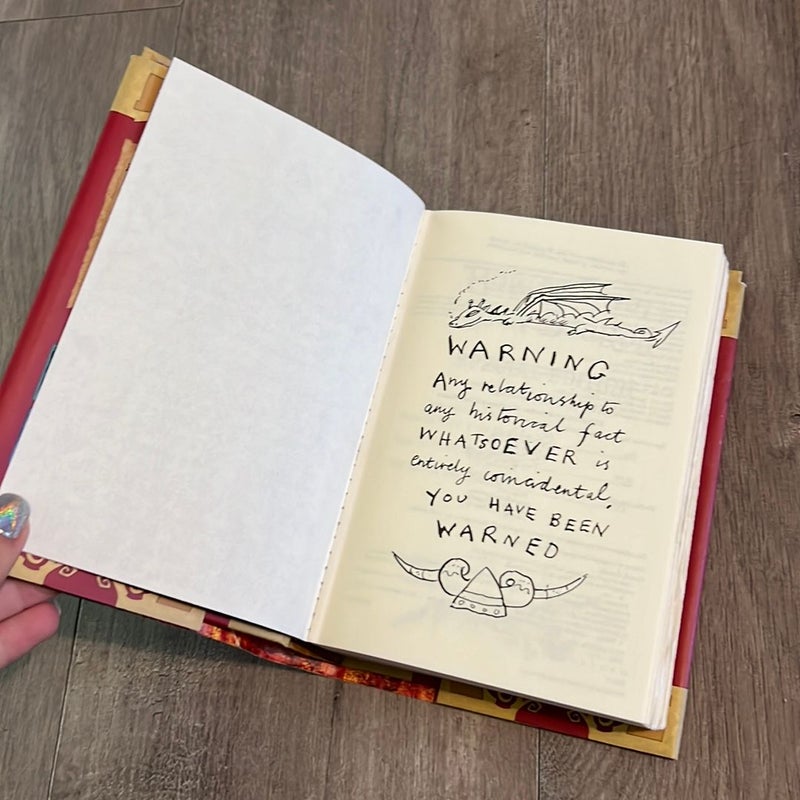 WARNING
Any relationship to
any historical fact
WHATSOEVER is
entirely coincidental.
YOU HAVE BEEN
WARNED